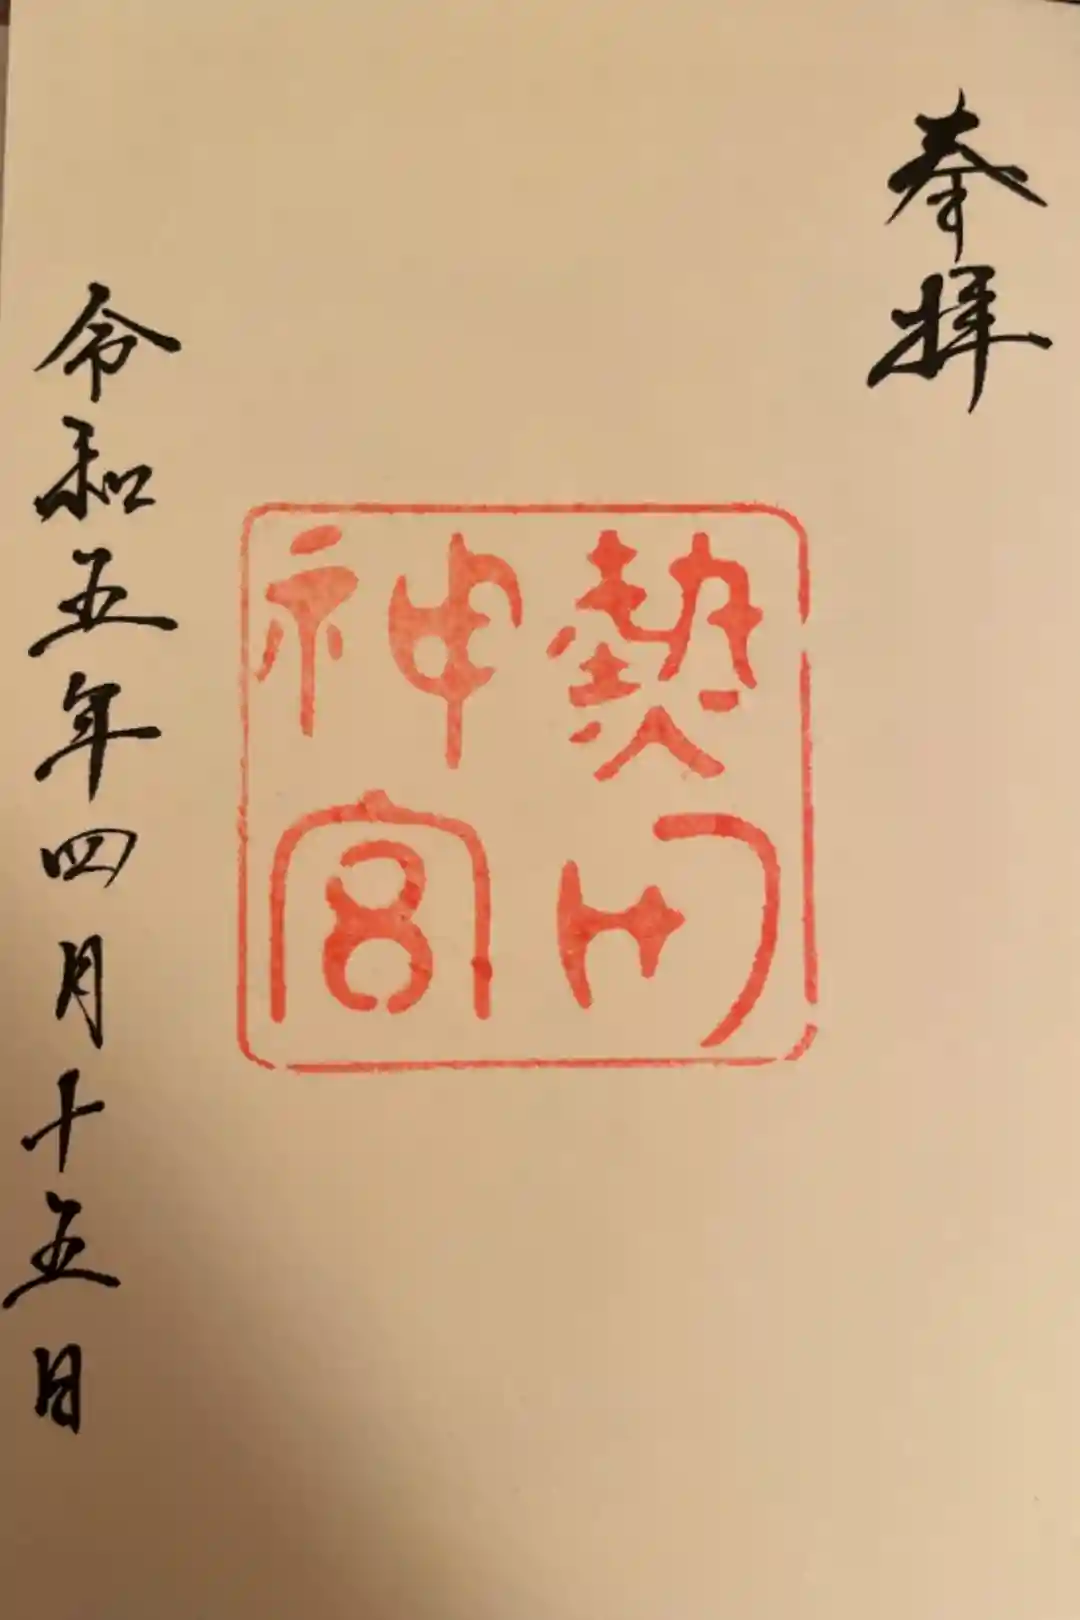 奉拝
熱田
神宮
令和五年四月十五日